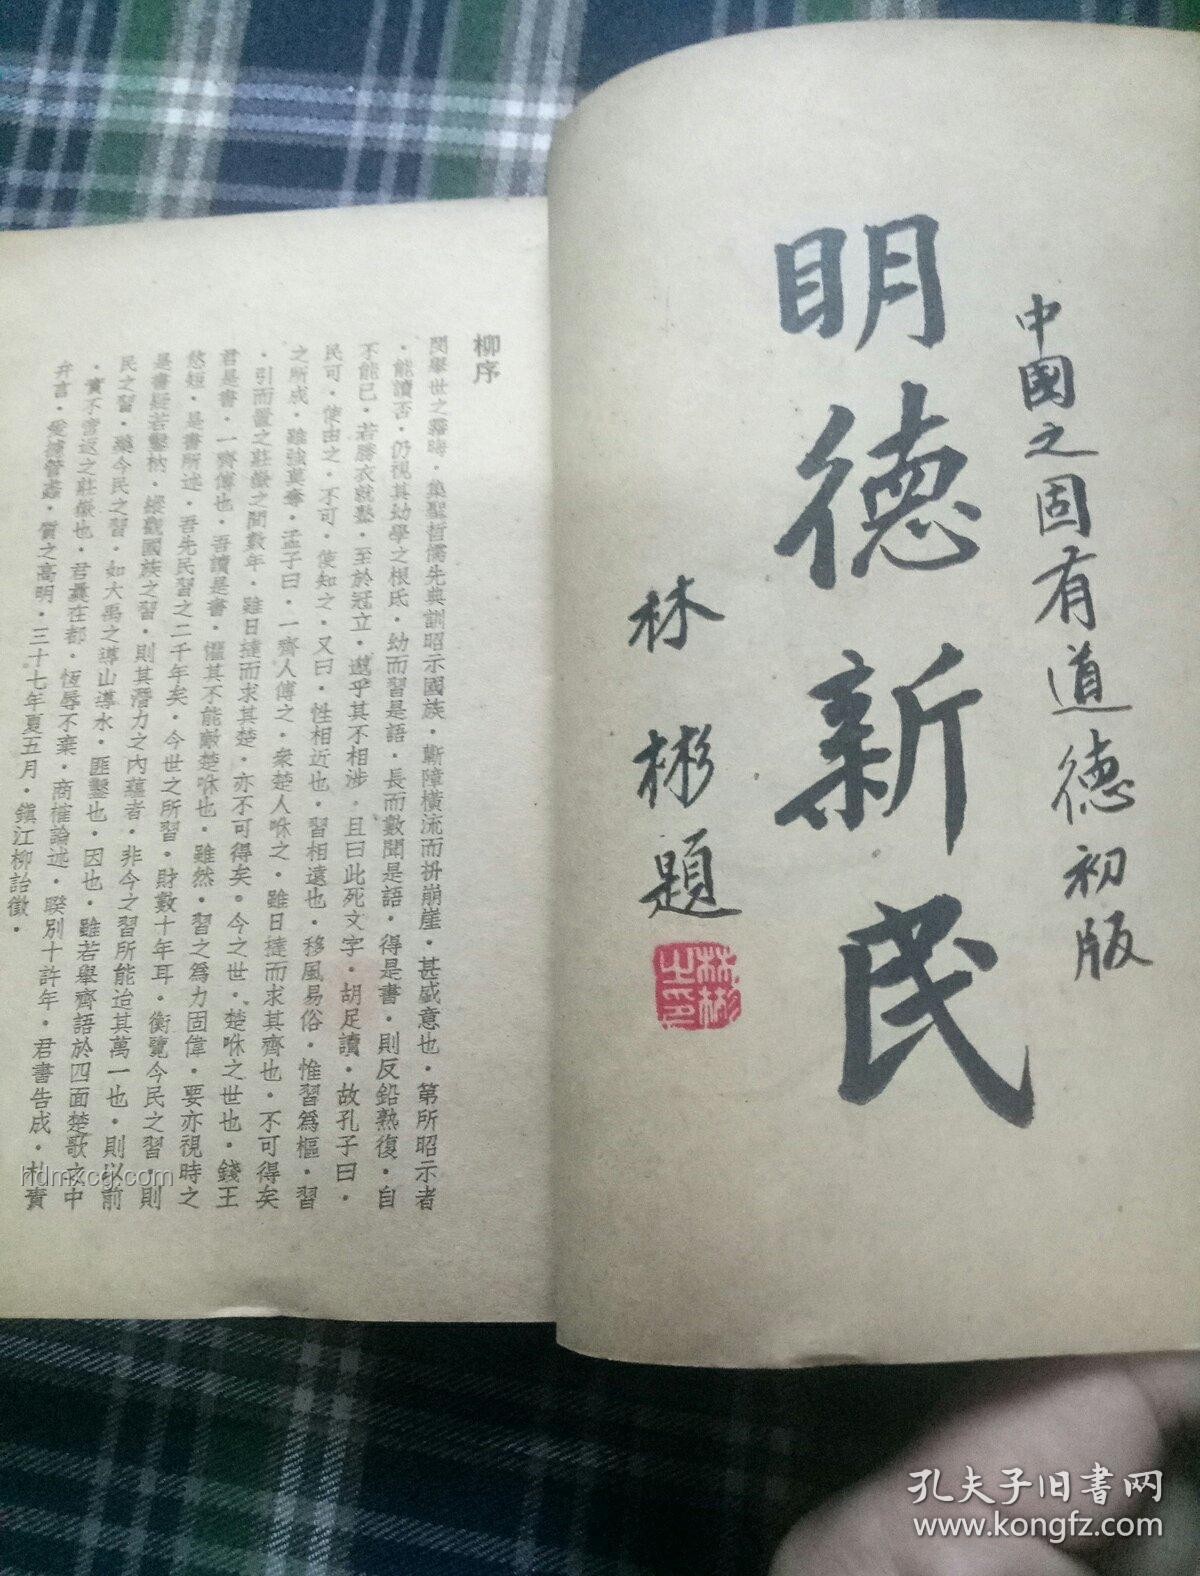 中國之固有道德初版
明德新民
林彬題
林彬之印
柳序
閔舉世之霿晦・集聖哲儒先典訓昭示國族・斬障橫流而拚崩崖・甚盛意也・第所昭示者
・能讀否・仍視其幼學之根氐・幼而習是語・長而數聞是語・得是書・則反鉛熟復・自
不能已・若勝衣就塾・至於冠立・邈乎其不相涉・且曰此死文字・胡足讀・故孔子曰・
民可・使由之・不可・使知之・又曰・性相近也・習相遠也・移風易俗・惟習爲樞・習
之所成・雖強莫奪・孟子曰・一齊人傅之・衆楚人咻之・雖日撻而求其齊也・不可得矣
・引而置之莊嶽之間數年・雖日撻而求其楚・亦不可得矣。今之世・楚咻之世也・錢王
君是書・一齊傅也・吾讀是書・懼其不能敵楚咻也・雖然・習之爲力固偉・要亦視時之
悠短・是書所述・吾先民習之二千年矣・今世之所習・財數十年耳・衡覽今民之習・則
是書疑若鑿枘・縱觀國族之習・則其潛力之內蘊者・非今之習所能治其萬一也・則以前
民之習・藥今民之習・如大禹之導山導水・匪鑿也・因也・雖若舉齊語於四面楚歌之中
・實不啻返之莊嶽也・君曩在都・恆辱不棄・商榷論述・睽別十許年・君書告成・札賁
弁言・爰攄管蠡・質之高明・三十七年夏五月・鎭江柳詒徵・
hdmxcg.com
孔夫子旧书网
www.kongfz.com